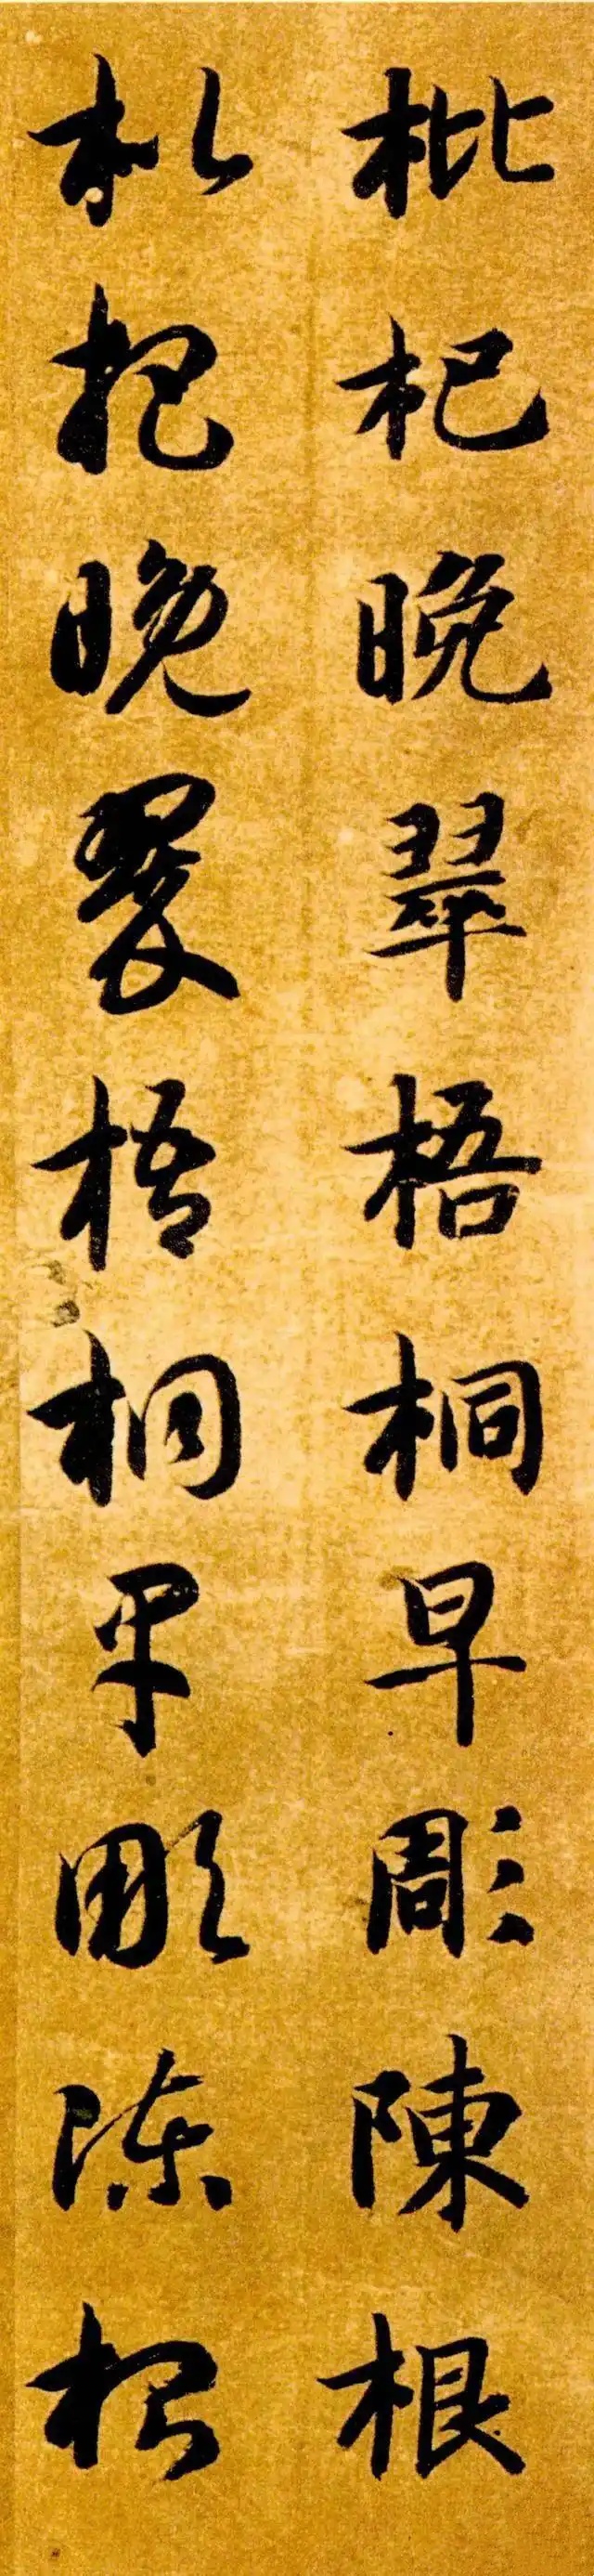 枇杷晚翠梧桐早彫陳根
枇杷晚翠梧桐早彫陳根